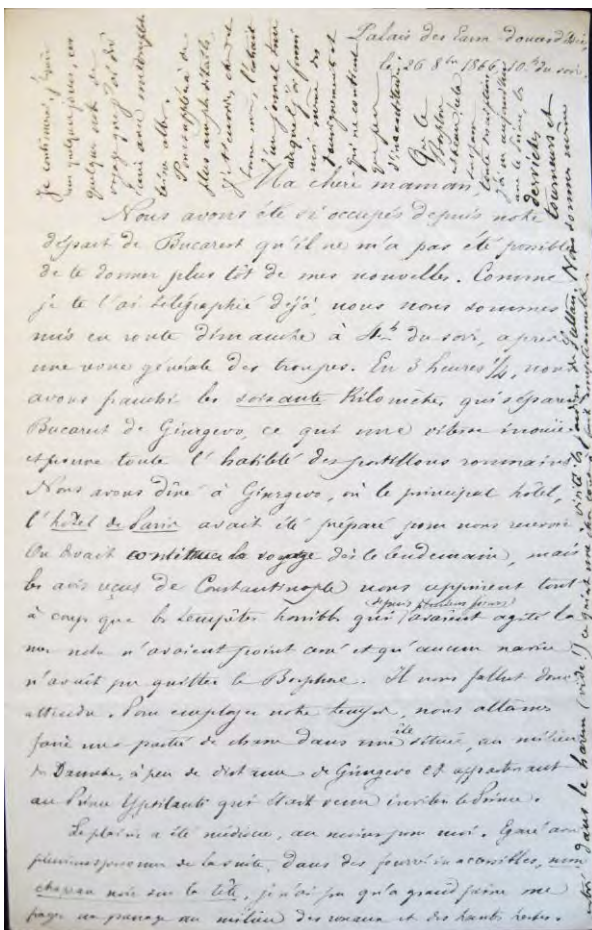 Palais des Eaux douces d'Asie,
le 26 8bre 1866, 10h du soir.
Ma chère maman,
Nous avons été si occupés depuis notre
départ de Bucarest qu'il ne m'a pas été possible
de te donner plus tôt de mes nouvelles. Comme
je te l'ai télégraphié déjà, nous nous sommes
mis en route dimanche à 4h du soir, après
une revue générale des troupes. En 3 heures 1/4, nous
avons franchi les soixante Kilomètres qui séparent
Bucarest de Giurgevo, ce qui une vitesse inouïe
et prouve toute l'habileté des postillons roumains.
Nous avons dîné à Giurgevo, où le principal hôtel,
l'hôtel de Paris avait été préparé pour nous recevoir
On devait continuer le voyage dès le lendemain, mais
les avis reçus de Constantinople nous apprirent tout
à coup que les tempêtes horribles qui depuis plusieurs jours avaient agité la
mer noire n'avaient point cessé et qu'aucun navire
n'avait pu quitter le Bosphore. Il nous fallut donc
attendre. Pour employer notre temps, nous allâmes
faire une partie de chasse dans une île située, au milieu
du Danube, à peu de distance de Giurgevo et appartenant
au Prince Ypsilanti qui était venu inviter le Prince.
Le plaisir a été médiocre, au moins pour moi. Egaré avec
plusieurs personnes de la suite, dans des fourrés inaccessibles, mon
chapeau noir sur la tête, je n'ai pu qu'à grand peine me
frayer un passage au milieu des roseaux et des hautes herbes.
Je continuerai, j'espère
dans quelques jours, ces
quelques notes de
voyage que j'ai dû
écrire avec
très hâte.
Pour suppléer à de
plus amples détails,
je t'envoie, chère
bonne mère, l'extrait
d'un journal turc
auquel j'ai fourni
moi-même des
renseignements et
qui ne contient
que peu
d'inexactitudes.
Que le
Bosphore
est
j'ai vu aujourd'hui
avec le Prince les
derviches
tourneurs et
visité les jardins du Sultan. Nous sommes même
entrés dans le harem (vide!) ce qui